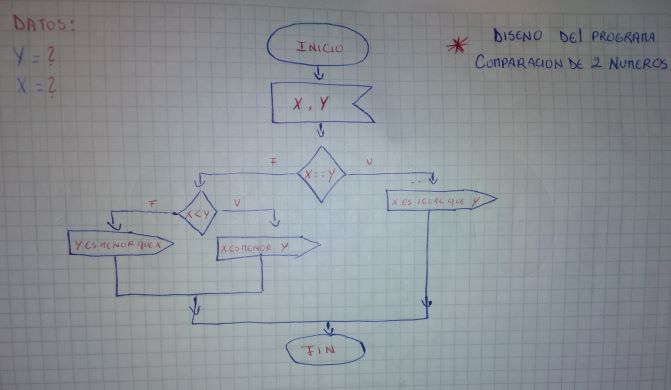 DATOS:
Y = ?
X = ?
INICIO
* DISENO DEl PROGRAMA
COMPARACION DE 2 NUMEROS
X, Y
F
X==Y
V
F
X<Y
V
X ES IGUAL QUE Y
Y ES MENOR QUE X
X ES MENOR Y
FIN